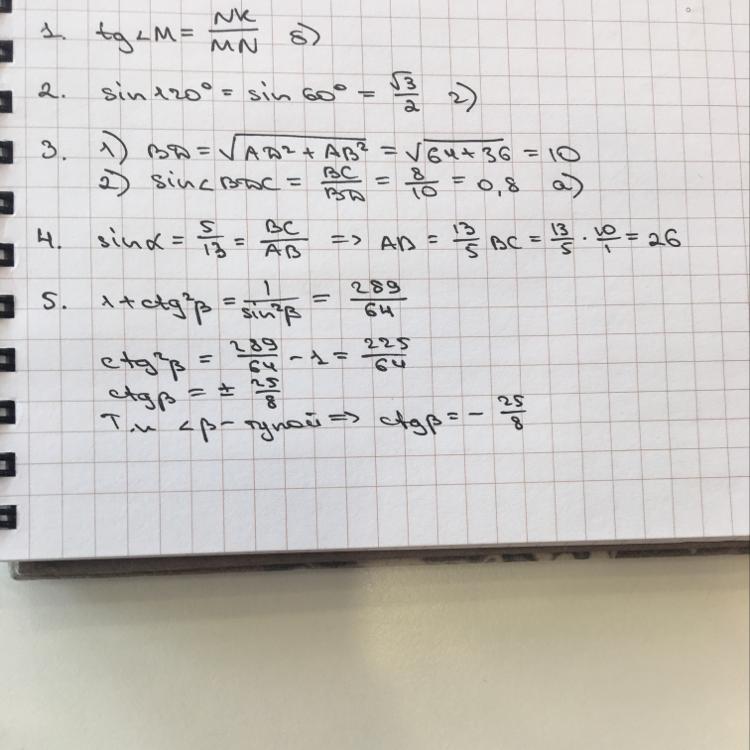 1. tg∠M = NK/MN б)
2. sin 120° = sin 60° = √3/2 г)
3. 1) BD = √(AD² + AB²) = √(64+36) = 10
2) sin∠BDC = BC/BD = 8/10 = 0,8 а)
4. sinα = 5/13 = BC/AB => AB = 13/5 BC = 13/5 · 10/1 = 26
5. 1 + ctg²β = 1/sin²β = 289/64
ctg²β = 289/64 - 1 = 225/64
ctgβ = ± 25/8
Т.к ∠β - тупой => ctgβ = - 25/8